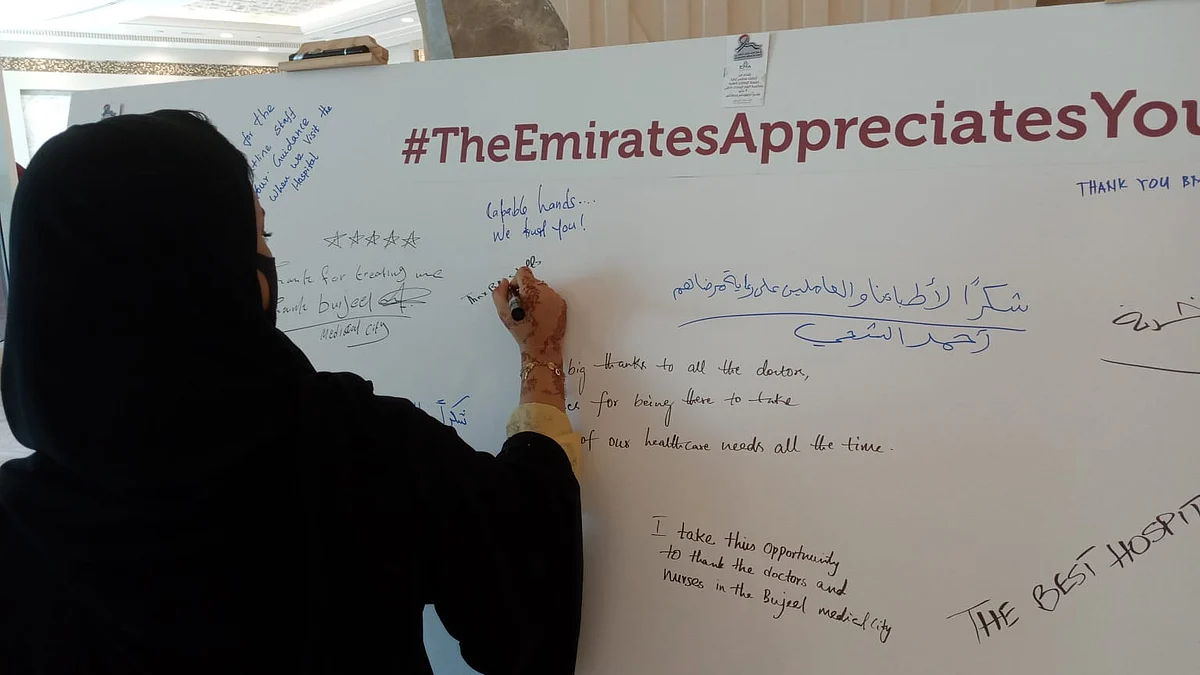 #TheEmiratesAppreciatesYou
for the
staff
Guidance
when we visit the
Hospital
Capable hands....
We trust you!
THANK YOU BM
thank for treating me
thank bujeel
Medical City
شكرًا لأطبائنا والعاملين على رعاية مرضاهم
أحمد الشحي
شكراً
big thanks to all the doctors,
for being there to take
of our healthcare needs all the time.
I take this opportunity
to thank the doctors and
nurses in the Bujeel medical city
THE BEST HOSPIT